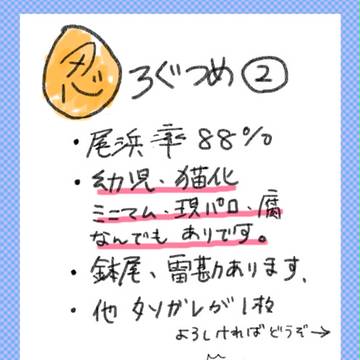 忍 ろぐつめ②
・尾浜率88%
・幼児・猫化
ミニマム・現パロ・腐
なんでも ありです。
・鉢尾、雷勘あります、
・他 タソガレが1枚
よろしければどうぞ→